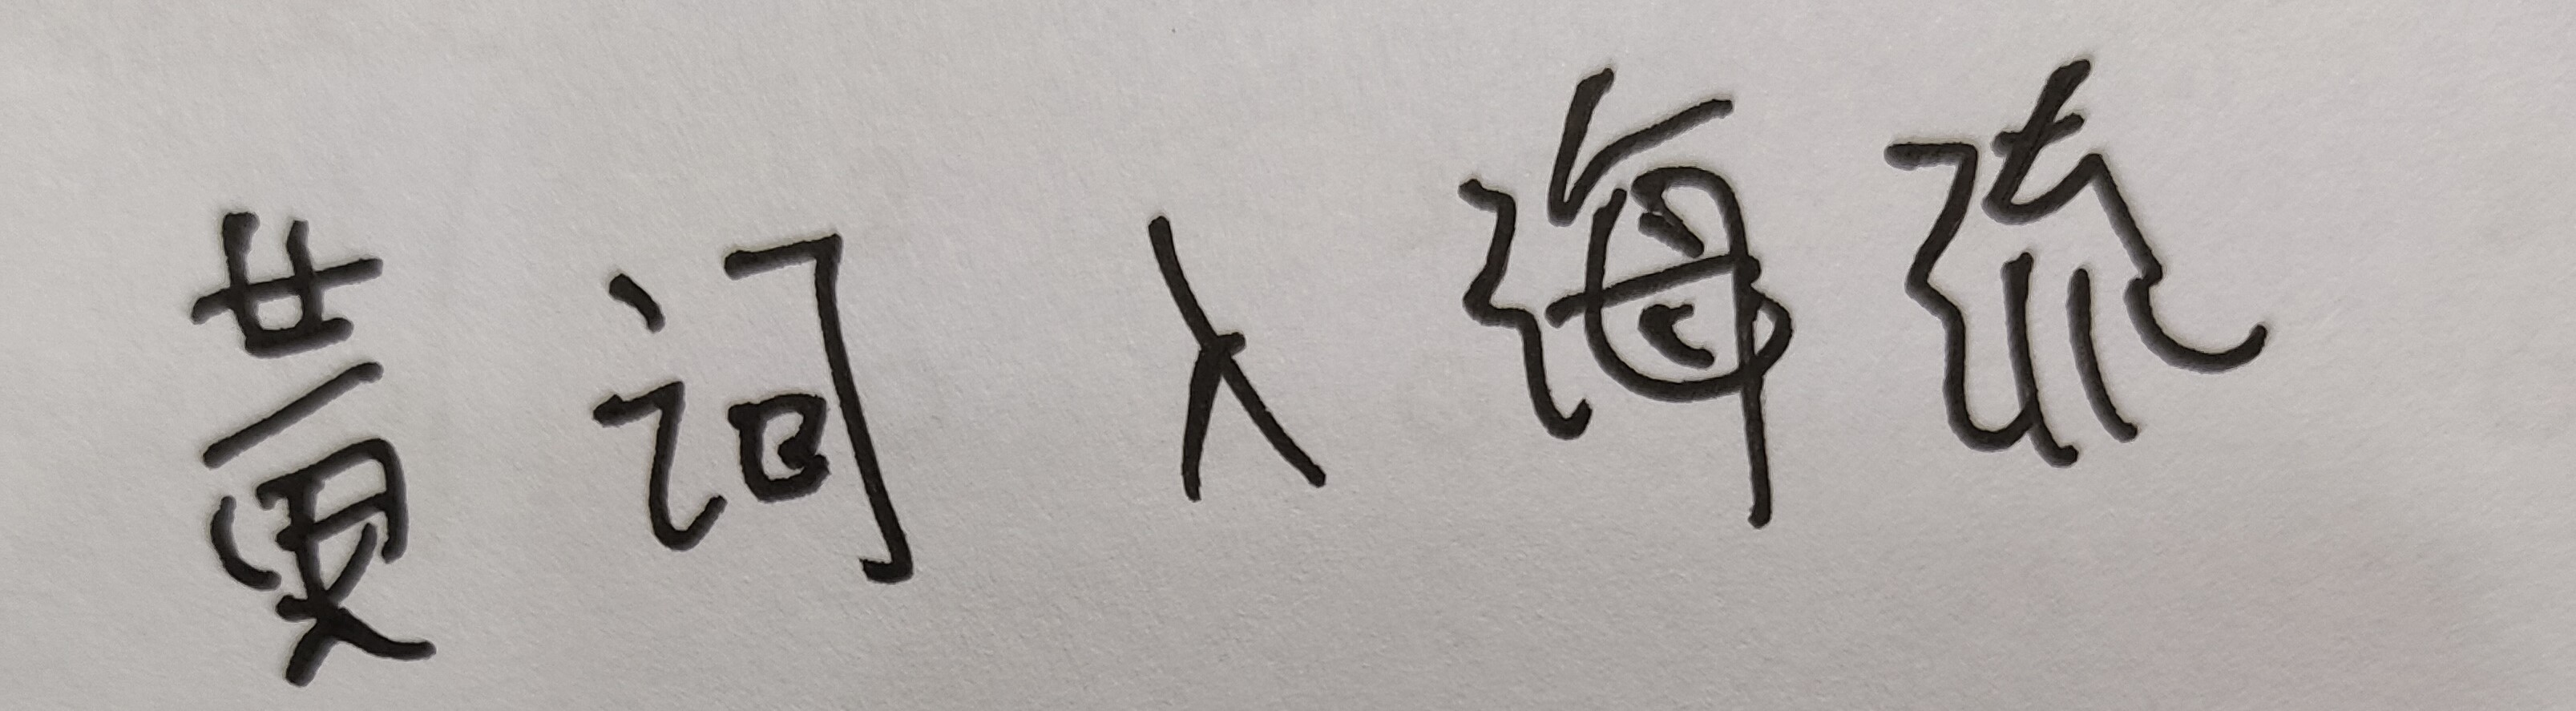 黄词入海流